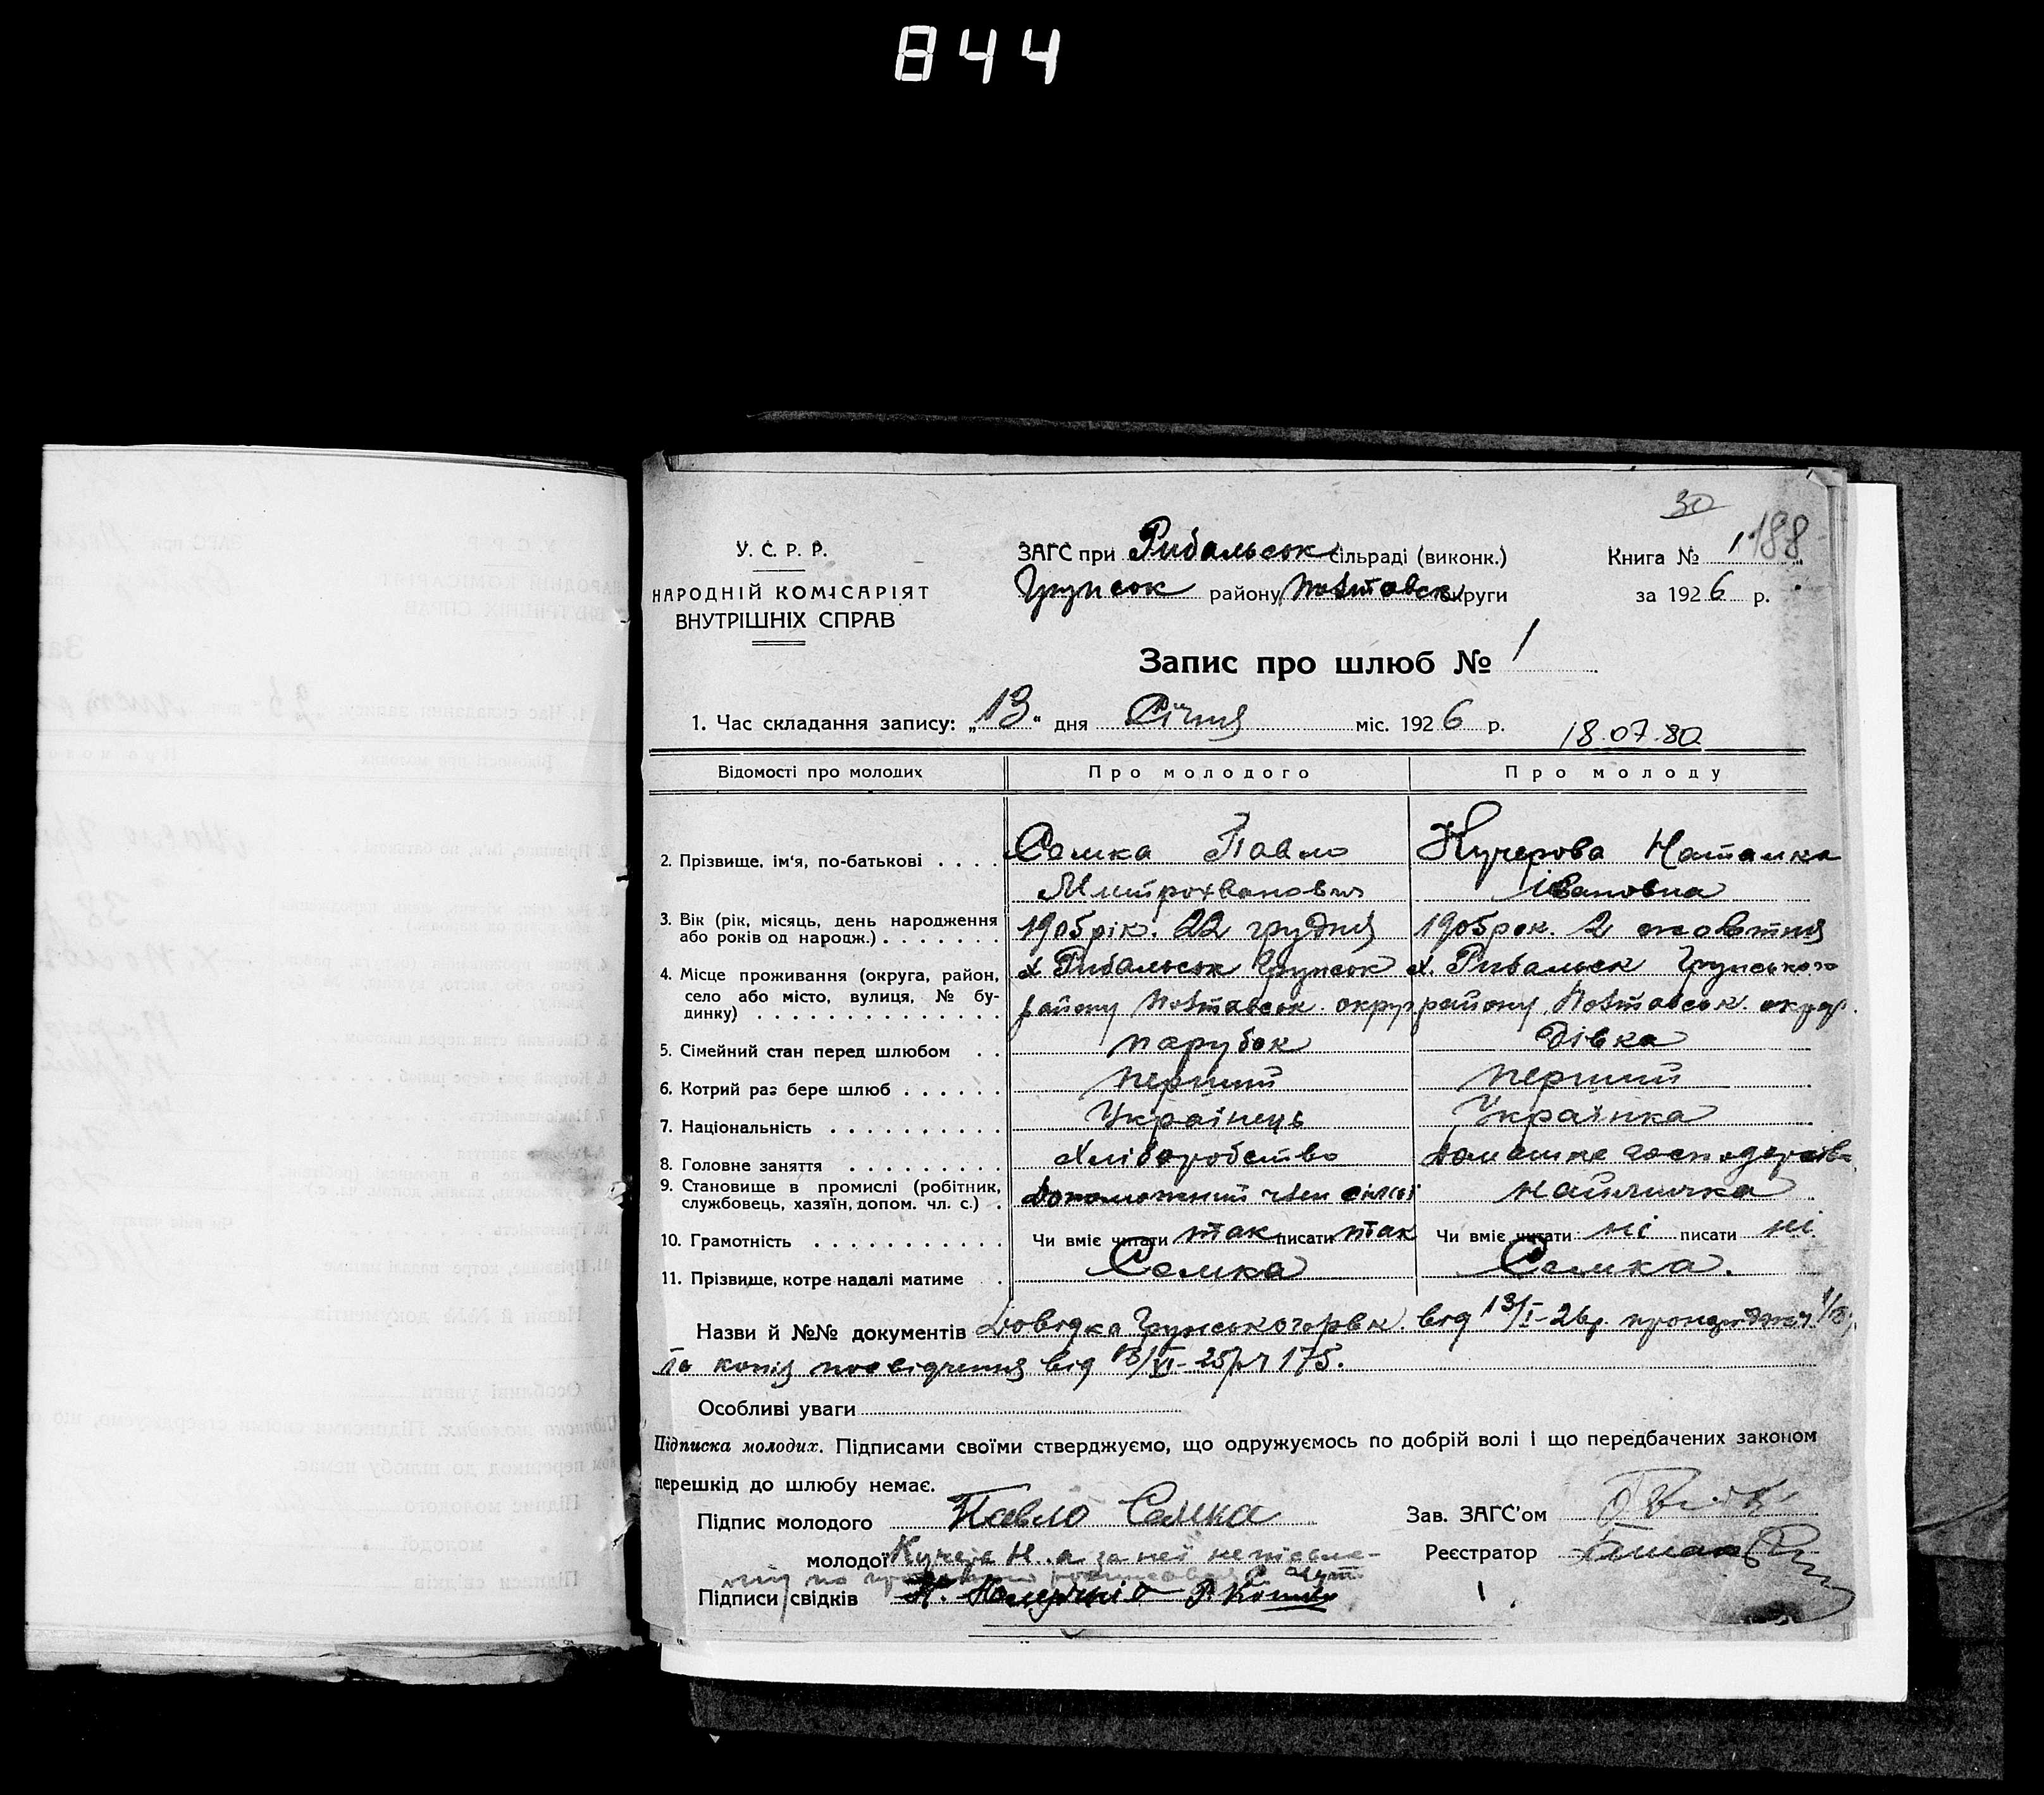 844
30
У. С. Р. Р.
НАРОДНІЙ КОМІСАРІЯТ
ВНУТРІШНІХ СПРАВ
ЗАГС при Рибальськ сільраді (виконк.)
Грунськ району Полтавськ округи
Книга № 1 188
за 1926 р.
Запис про шлюб № 1
1. Час складання запису: „13" дня Січня міс. 1926 р.
18.07.80
Відомості про молодих Про молодого Про молоду
2. Прізвище, ім'я, по-батькові . . . . Семка Павло Кучерова Наталка
Митрохванович Івановна
3. Вік (рік, місяць, день народження
або років од народж.) . . . . . . . 1905 рік. 22 грудня 1905 рок. 2 жовтня
4. Місце проживання (округа, район,
село або місто, вулиця, № будинку) . . . . . . . . . . . . . .
х. Рибальськ Грунськ х. Рибальск Грунського
району Полтавськ. округ району Полтавськ. округ.
5. Сімейний стан перед шлюбом . . парубок Дівка
6. Котрий раз бере шлюб . . . . . . перший перший
7. Національність . . . . . . . . . . Українець Українка
8. Головне заняття . . . . . . . . . Хліборобство Домашнє господарство
9. Становище в промислі (робітник,
службовець, хазяїн, допом. чл. с.) . Допоможний член сімьї наймичка
10. Грамотність . . . . . . . . . . . Чи вміє читати так писати так Чи вміє читати ні писати ні
11. Прізвище, котре надалі матиме . Семка Семка.
Назви й №№ документів Довідка Грунського рвк. від 13/I-26р.
та копія посвідчення від 18/VI-25р ч 175.
Особливі уваги
Підписка молодих. Підписами своїми стверджуємо, що одружуємось по добрій волі і що передбачених законом
перешкід до шлюбу немає.
Підпис молодого Павло Семка Зав. ЗАГС'ом
молодої Кучер Н. а за неї неписьме-
Реєстратор
Підписи свідків